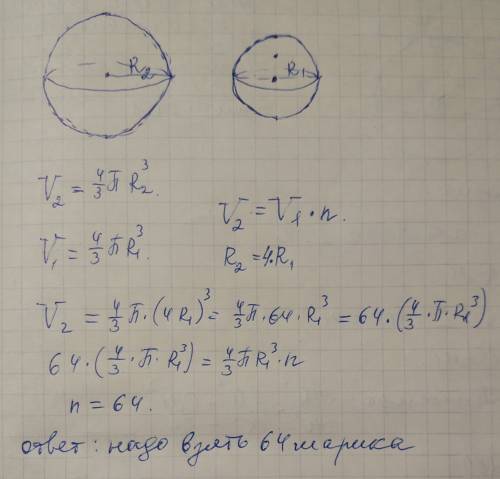 R₂ R₁
V₂ = 4/3 π R₂³.
V₂ = V₁ · n.
V₁ = 4/3 π R₁³.
R₂ = 4·R₁
V₂ = 4/3 π · (4 R₁)³ = 4/3 π · 64 · R₁³ = 64 · (4/3 · π · R₁³)
64 · (4/3 · π · R₁³) = 4/3 π R₁³ · n
n = 64.
ответ: надо взять 64 шарика